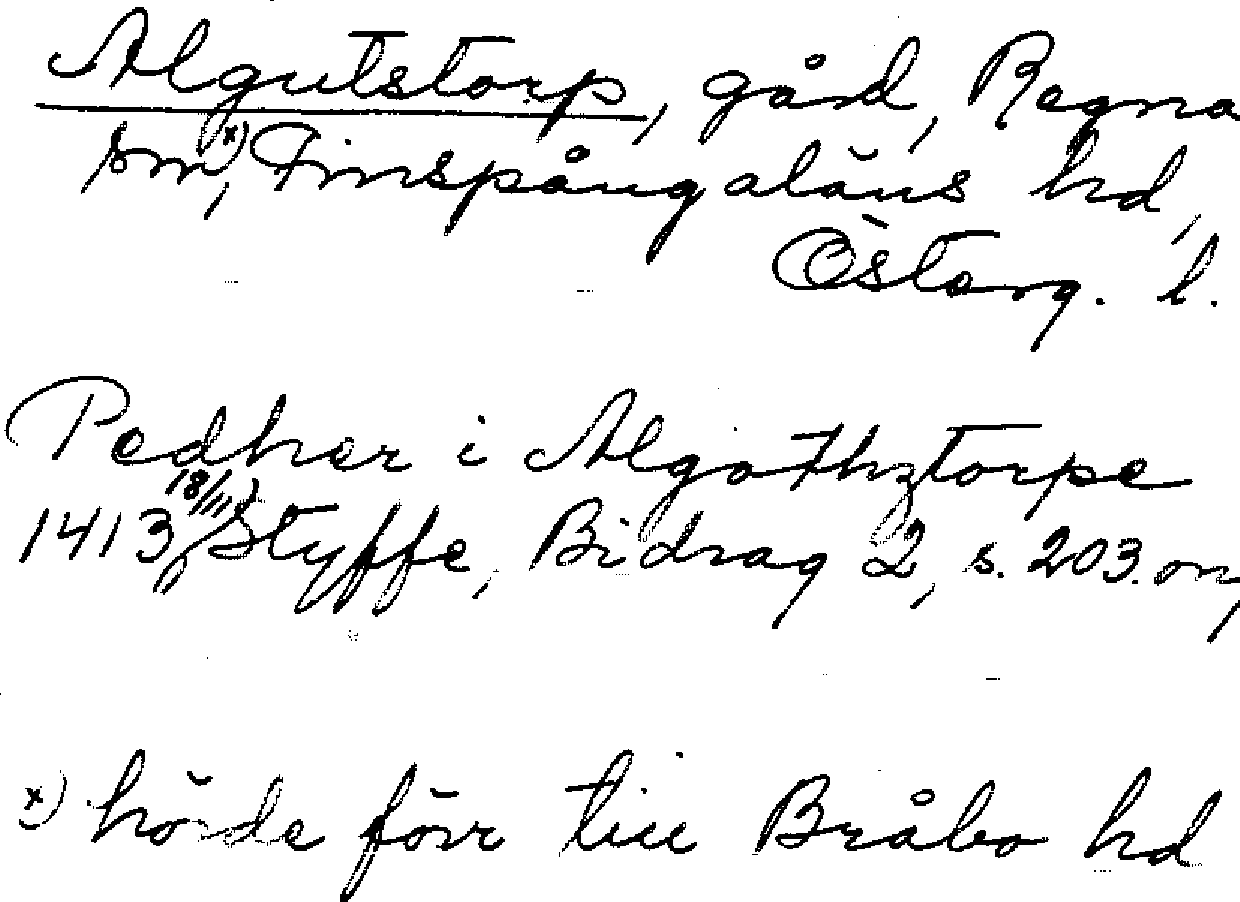 Algutstorp, gård, Regna
sn,x) Finspångaläns hd,
Österg. l.
Pedher i Algothztorpe
1413 18/11 Styffe, Bidrag 2, s. 203. or,
x) hörde förr till Bråbo hd